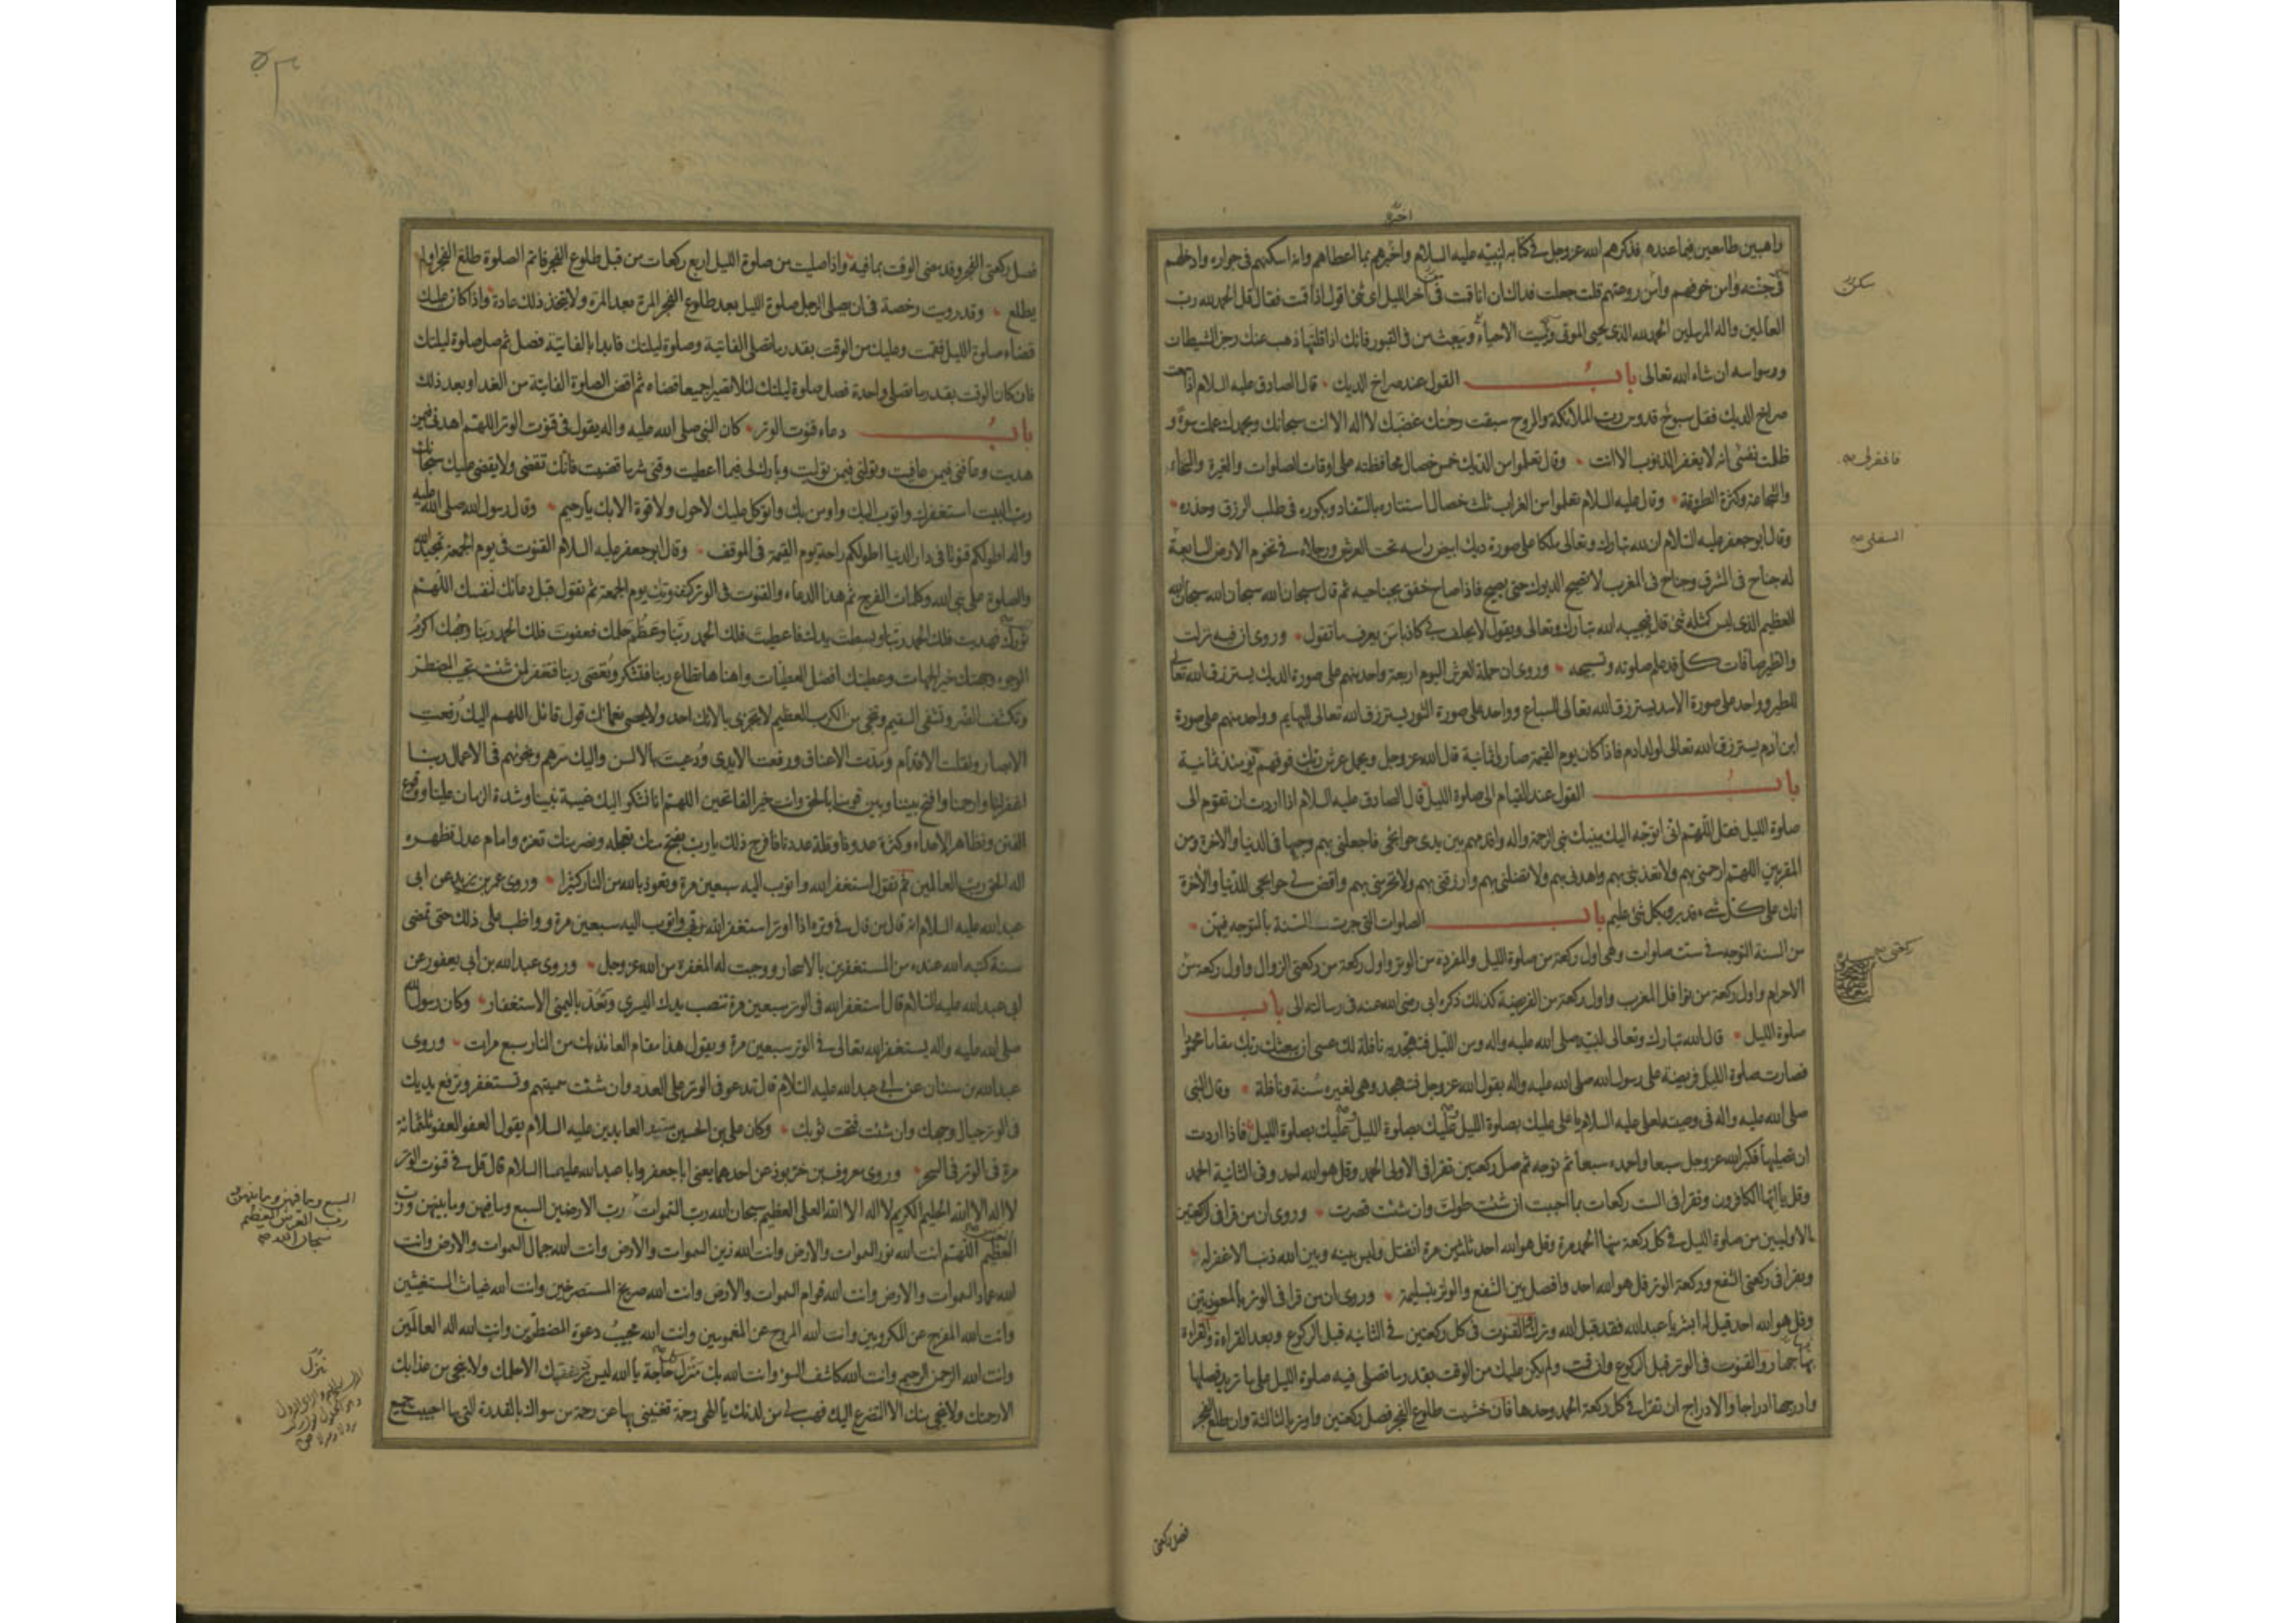 اخبره
راهبين طامعين فيما عنده فذكرهم الله عز وجل في كتابه لنبيه عليه السلام واخبرهم بما اعطاهم وانه اسكنهم في جواره وادخلهم
جنته وامن خوفهم وامن روعتهم قلت جعلت فداك ان انا قمت في آخر الليل اي شئ اقول اذا قمت فقال قل الحمد لله رب
العالمين واله المرسلين الحمد لله الذي يحيي الموتى ويميت الاحياء ويبعث من في القبور فانك اذا قلتها ذهب عنك رجز الشيطان
ووسواسه ان شاء الله تعالى باب القول عند صراخ الديك قال الصادق عليه السلام اذا سمعت
صراخ الديك فقل سبوح قدوس رب الملائكة والروح سبقت رحمتك غضبك لا اله الا انت سبحانك وبحمدك عملت سوءا و
ظلمت نفسي انه لا يغفر الذنوب الا انت وقال تعلموا من الديك خمس خصال محافظته على اوقات الصلوات والغيرة والسخاء
والشجاعة وكثرة الطروقة وقال عليه السلام تعلموا من الغراب ثلث خصال استتاره بالسفاد وبكوره في طلب الرزق وحذره
وقال ابو جعفر عليه السلام ان لله تبارك وتعالى ملكا على صورة ديك ابيض راسه تحت العرش ورجلاه في تخوم الارض السابعة
له جناح في المشرق وجناح في المغرب لا تصيح الديوك حتى يصيح فاذا صاح خفق بجناحيه ثم قال سبحان الله سبحان الله سبحان الله
العظيم الذي ليس كمثله شئ قال فيجيبه الله تبارك وتعالى ويقول لا يحلف بي كاذبا من يعرف ما تقول وروي ان فيه نزلت
والطير صافات كل قد علم صلوته وتسبيحه وروي ان حملة العرش اليوم اربعة واحد منهم على صورة الديك يسترزق الله تعالى
للطير وواحد على صورة الاسد يسترزق الله تعالى للسباع وواحد على صورة الثور يسترزق الله تعالى للبهايم وواحد منهم على صورة
ابن آدم يسترزق الله تعالى لولد ادم فاذا كان يوم القيمة صاروا ثمانية قال الله عز وجل ويحمل عرش ربك فوقهم يومئذ ثمانية
باب القول عند القيام الى صلوة الليل قال الصادق عليه السلام اذا اردت ان تقوم الى
صلوة الليل فقل اللهم اني اتوجه اليك بنبيك نبي الرحمة واله واقدمهم بين يدي حوائجي فاجعلني بهم وجيها في الدنيا والاخرة ومن
المقربين اللهم ارحمني بهم ولا تعذبني بهم واهدني بهم ولا تضلني بهم وارزقني بهم ولا تحرمني بهم واقض لي حوايجي للدنيا والآخرة
انك على كل شئ قدير وبكل شئ عليم باب الصلوات التي جرت السنة بالتوجه فيهن
من السنة التوجه في ست صلوات وهي اول ركعة من صلوة الليل والمفردة من الوتر واول ركعة من ركعتي الزوال واول ركعة من
الاحرام واول ركعة من نوافل المغرب واول ركعة من الفريضة كذلك ذكره ابي رضي الله عنه في رسالته الى باب
صلوة الليل قال الله تبارك وتعالى لنبيه صلى الله عليه واله ومن الليل فتهجد به نافلة لك عسى ان يبعثك ربك مقاما محمودا
فصارت صلوة الليل فريضة على رسول الله صلى الله عليه واله بقول الله عز وجل فتهجد وهي لغيره سنة ونافلة وقال النبي
صلى الله عليه واله في وصيته لعلي عليه السلام يا علي عليك بصلوة الليل عليك بصلوة الليل عليك بصلوة الليل فاذا اردت
ان تصليها فكبر الله عز وجل سبعا واحمده سبعا ثم توجه ثم صل ركعتين تقرا في الاولى الحمد وقل هو الله احد وفي الثانية الحمد
وقل يا ايها الكافرون وتقرا في الست ركعات بما احببت ان شئت طولت وان شئت قصرت وروي ان من قرا في الركعتين
الاوليين من صلوة الليل في كل ركعة منهما الحمد مرة وقل هو الله احد ثلثين مرة انفتل وليس بينه وبين الله ذنب الا غفر له
ويقرا في ركعتي الشفع وركعة الوتر قل هو الله احد وافصل بين الشفع والوتر بتسليمة وروي ان من قرا في الوتر بالمعوذتين
وقل هو الله احد قيل له ابشر يا عبد الله فقد قبل الله وترك والقنوت في كل ركعتين في الثانية قبل الركوع وبعد القراءة والقراءة
بها جهار والقنوت في الوتر قبل الركوع وان قمت ولم يكن عليك من الوقت بقدر ما تصلي فيه صلوة الليل على ما تريد فصلها
وادرجها ادراجا والادراج ان تقرا في كل ركعة الحمد وحدها فان خشيت طلوع الفجر فصل ركعتين واوتر بالثالثة وان طلع الفجر
فاغفر لي
السفلى
فصل ركعتي
فصل ركعتي الفجر وقد مضى الوقت بما فيه واذا صليت من صلوة الليل اربع ركعات من قبل طلوع الفجر فاتم الصلوة طلع الفجر او لم
يطلع وقد رويت رخصة في ان يصلي الرجل صلوة الليل بعد طلوع الفجر المرة بعد المرة ولا يتخذ ذلك عادة واذا كان عليك
قضاء صلوة الليل فقمت وعليك من الوقت بقدر ما تصلي الفائتة وصلوة ليلتك فابدا بالفائتة فصل ثم صل صلوة ليلتك
فان كان الوقت بقدر ما تصلي واحدة فصل صلوة ليلتك لئلا تصيرا جميعا قضاء ثم اقض الصلوة الفائتة من الغد او بعد ذلك
باب دعاء قنوت الوتر كان النبي صلى الله عليه واله يقول في قنوت الوتر اللهم اهدني فيمن
هديت وعافني فيمن عافيت وتولني فيمن توليت وبارك لي فيما اعطيت وقني شر ما قضيت فانك تقضي ولا يقضى عليك سبحانك
رب البيت استغفرك واتوب اليك واومن بك واتوكل عليك لا حول ولا قوة الا بك يا رحيم وقال رسول الله صلى الله عليه
واله اطولكم قنوتا في دار الدنيا اطولكم راحة يوم القيمة في الموقف وقال ابو جعفر عليه السلام القنوت في يوم الجمعة تمجيد الله
والصلوة على نبي الله وكلمات الفرج ثم هذا الدعاء والقنوت في الوتر كقنوتك يوم الجمعة ثم تقول قبل دعائك لنفسك اللهم
تم نورك فهديت فلك الحمد ربنا وبسطت يدك فاعطيت فلك الحمد ربنا وعظم حلمك فعفوت فلك الحمد ربنا وجهك اكرم
الوجوه وجهتك خير الجهات وعطيتك افضل العطيات واهناها تطاع ربنا فتشكر وتعصى ربنا فتغفر لمن شئت تجيب المضطر
وتكشف الضر وتشفي السقيم وتنجي من الكرب العظيم لا يجزي بالائك احد ولا يحصي نعمائك قول قائل اللهم اليك رفعت
الابصار ونقلت الاقدام ومدت الاعناق ورفعت الايدي ودعيت بالالسن واليك سرهم ونجويهم في الاعمال ربنا
اغفر لنا وارحمنا وافتح بيننا وبين قومنا بالحق وانت خير الفاتحين اللهم انا نشكو اليك غيبة نبينا وشدة الزمان علينا ووقوع
الفتن وتظاهر الاعداء وكثرة عدونا وقلة عددنا فافرج ذلك يا رب بفتح منك تعجله ونصر منك تعزه وامام عدل تظهره
اله الحق رب العالمين ثم تقول استغفر الله واتوب اليه سبعين مرة وتعوذ بالله من النار كثيرا وروى عمر بن يزيد عن ابي
عبد الله عليه السلام انه قال من قال في وتره اذا اوتر استغفر الله ربي واتوب اليه سبعين مرة وواظب على ذلك حتى تمضي
سنة كتبه الله عنده من المستغفرين بالاسحار ووجبت له المغفرة من الله عز وجل وروى عبد الله بن ابي يعفور عن
ابي عبد الله عليه السلام قال استغفر الله في الوتر سبعين مرة تنصب يدك اليسرى وتعد باليمنى الاستغفار وكان رسول الله
صلى الله عليه واله يستغفر الله تعالى في الوتر سبعين مرة ويقول هذا مقام العائذ بك من النار سبع مرات وروى
عبد الله بن سنان عن ابي عبد الله عليه السلام قال تدعو في الوتر على العدو وان شئت سميتهم وتستغفر وترفع يديك
في الوتر حيال وجهك وان شئت فتحت ثوبك وكان علي بن الحسين سيد العابدين عليه السلام يقول العفو العفو ثلثمائة
مرة في الوتر في السحر وروى معروف بن خربوذ عن احدهما يعني ابا جعفر وابا عبد الله عليهما السلام قال قل في قنوت الوتر
لا اله الا الله الحليم الكريم لا اله الا الله العلي العظيم سبحان الله رب السموات رب الارضين السبع وما فيهن وما بينهن ورب
العظيم اللهم انت الله نور السموات والارض وانت الله زين السموات والارض وانت الله جمال السموات والارض وانت
الله عماد السموات والارض وانت الله قوام السموات والارض وانت الله صريخ المستصرخين وانت الله غياث المستغيثين
وانت الله المفرج عن المكروبين وانت الله المروح عن المغمومين وانت الله مجيب دعوة المضطرين وانت الله اله العالمين
وانت الله الرحمن الرحيم وانت الله كاشف السوء وانت الله بك تنزل كل حاجة يا الله ليس يرد غضبك الا حلمك ولا ينجي من عذابك
الا رحمتك ولا ينجي منك الا التضرع اليك فهب لي من لدنك يا الهي رحمة تغنيني بها عن رحمة من سواك بالقدرة التي بها احييت جميع
السبع وما فيهن وما بينهن و
رب العرش العظيم
سبحان الله
تنزل